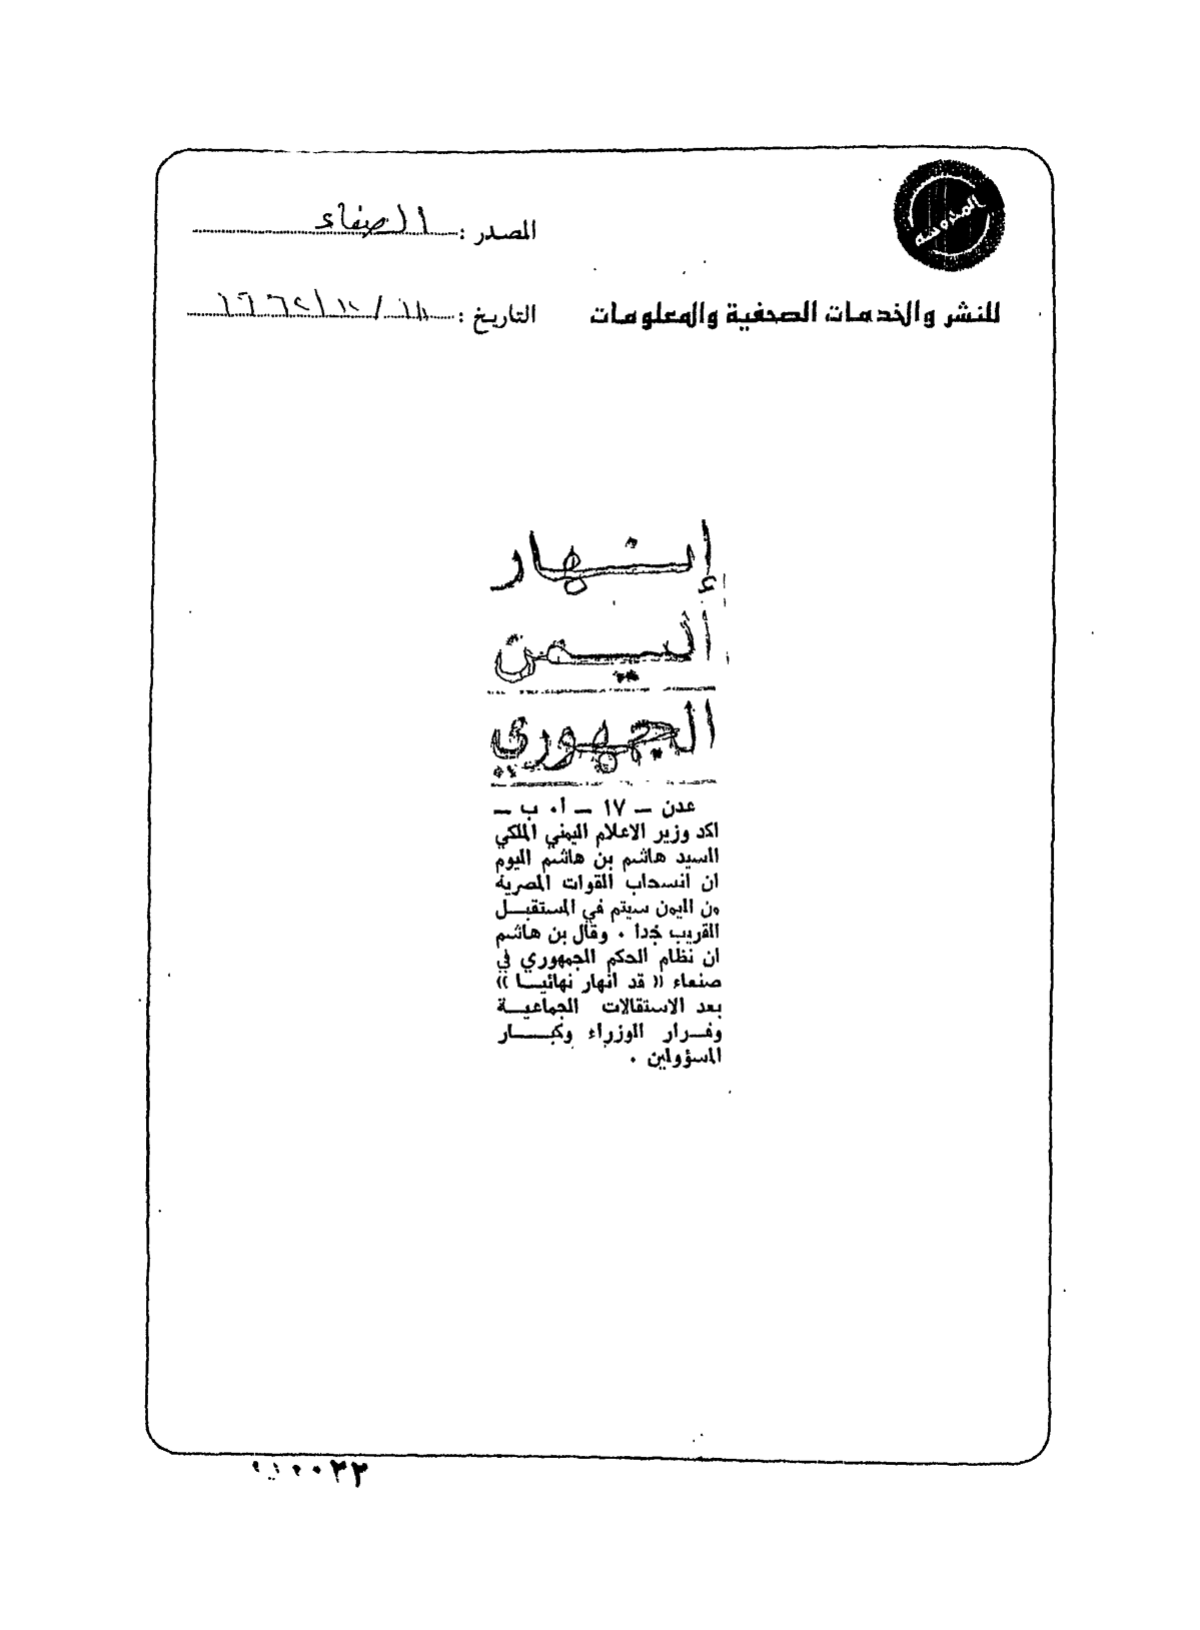 المصدر : الصفاء
للنشر والخدمات الصحفية والمعلومات
التاريخ : ١٨ / ١٢ /
إنهار
اليمن
الجمهوري
عدن ــ ١٧ ــ أ٠ ب ــ
اكد وزير الاعلام اليمني الملكي
السيد هاشم بن هاشم اليوم
ان انسحاب القوات المصرية
من اليمن سيتم في المستقبل
القريب جدا ٠ وقال بن هاشم
ان نظام الحكم الجمهوري في
صنعاء (( قد انهار نهائيا ))
بعد الاستقالات الجماعية
وفرار الوزراء وكبار
المسؤولين ٠